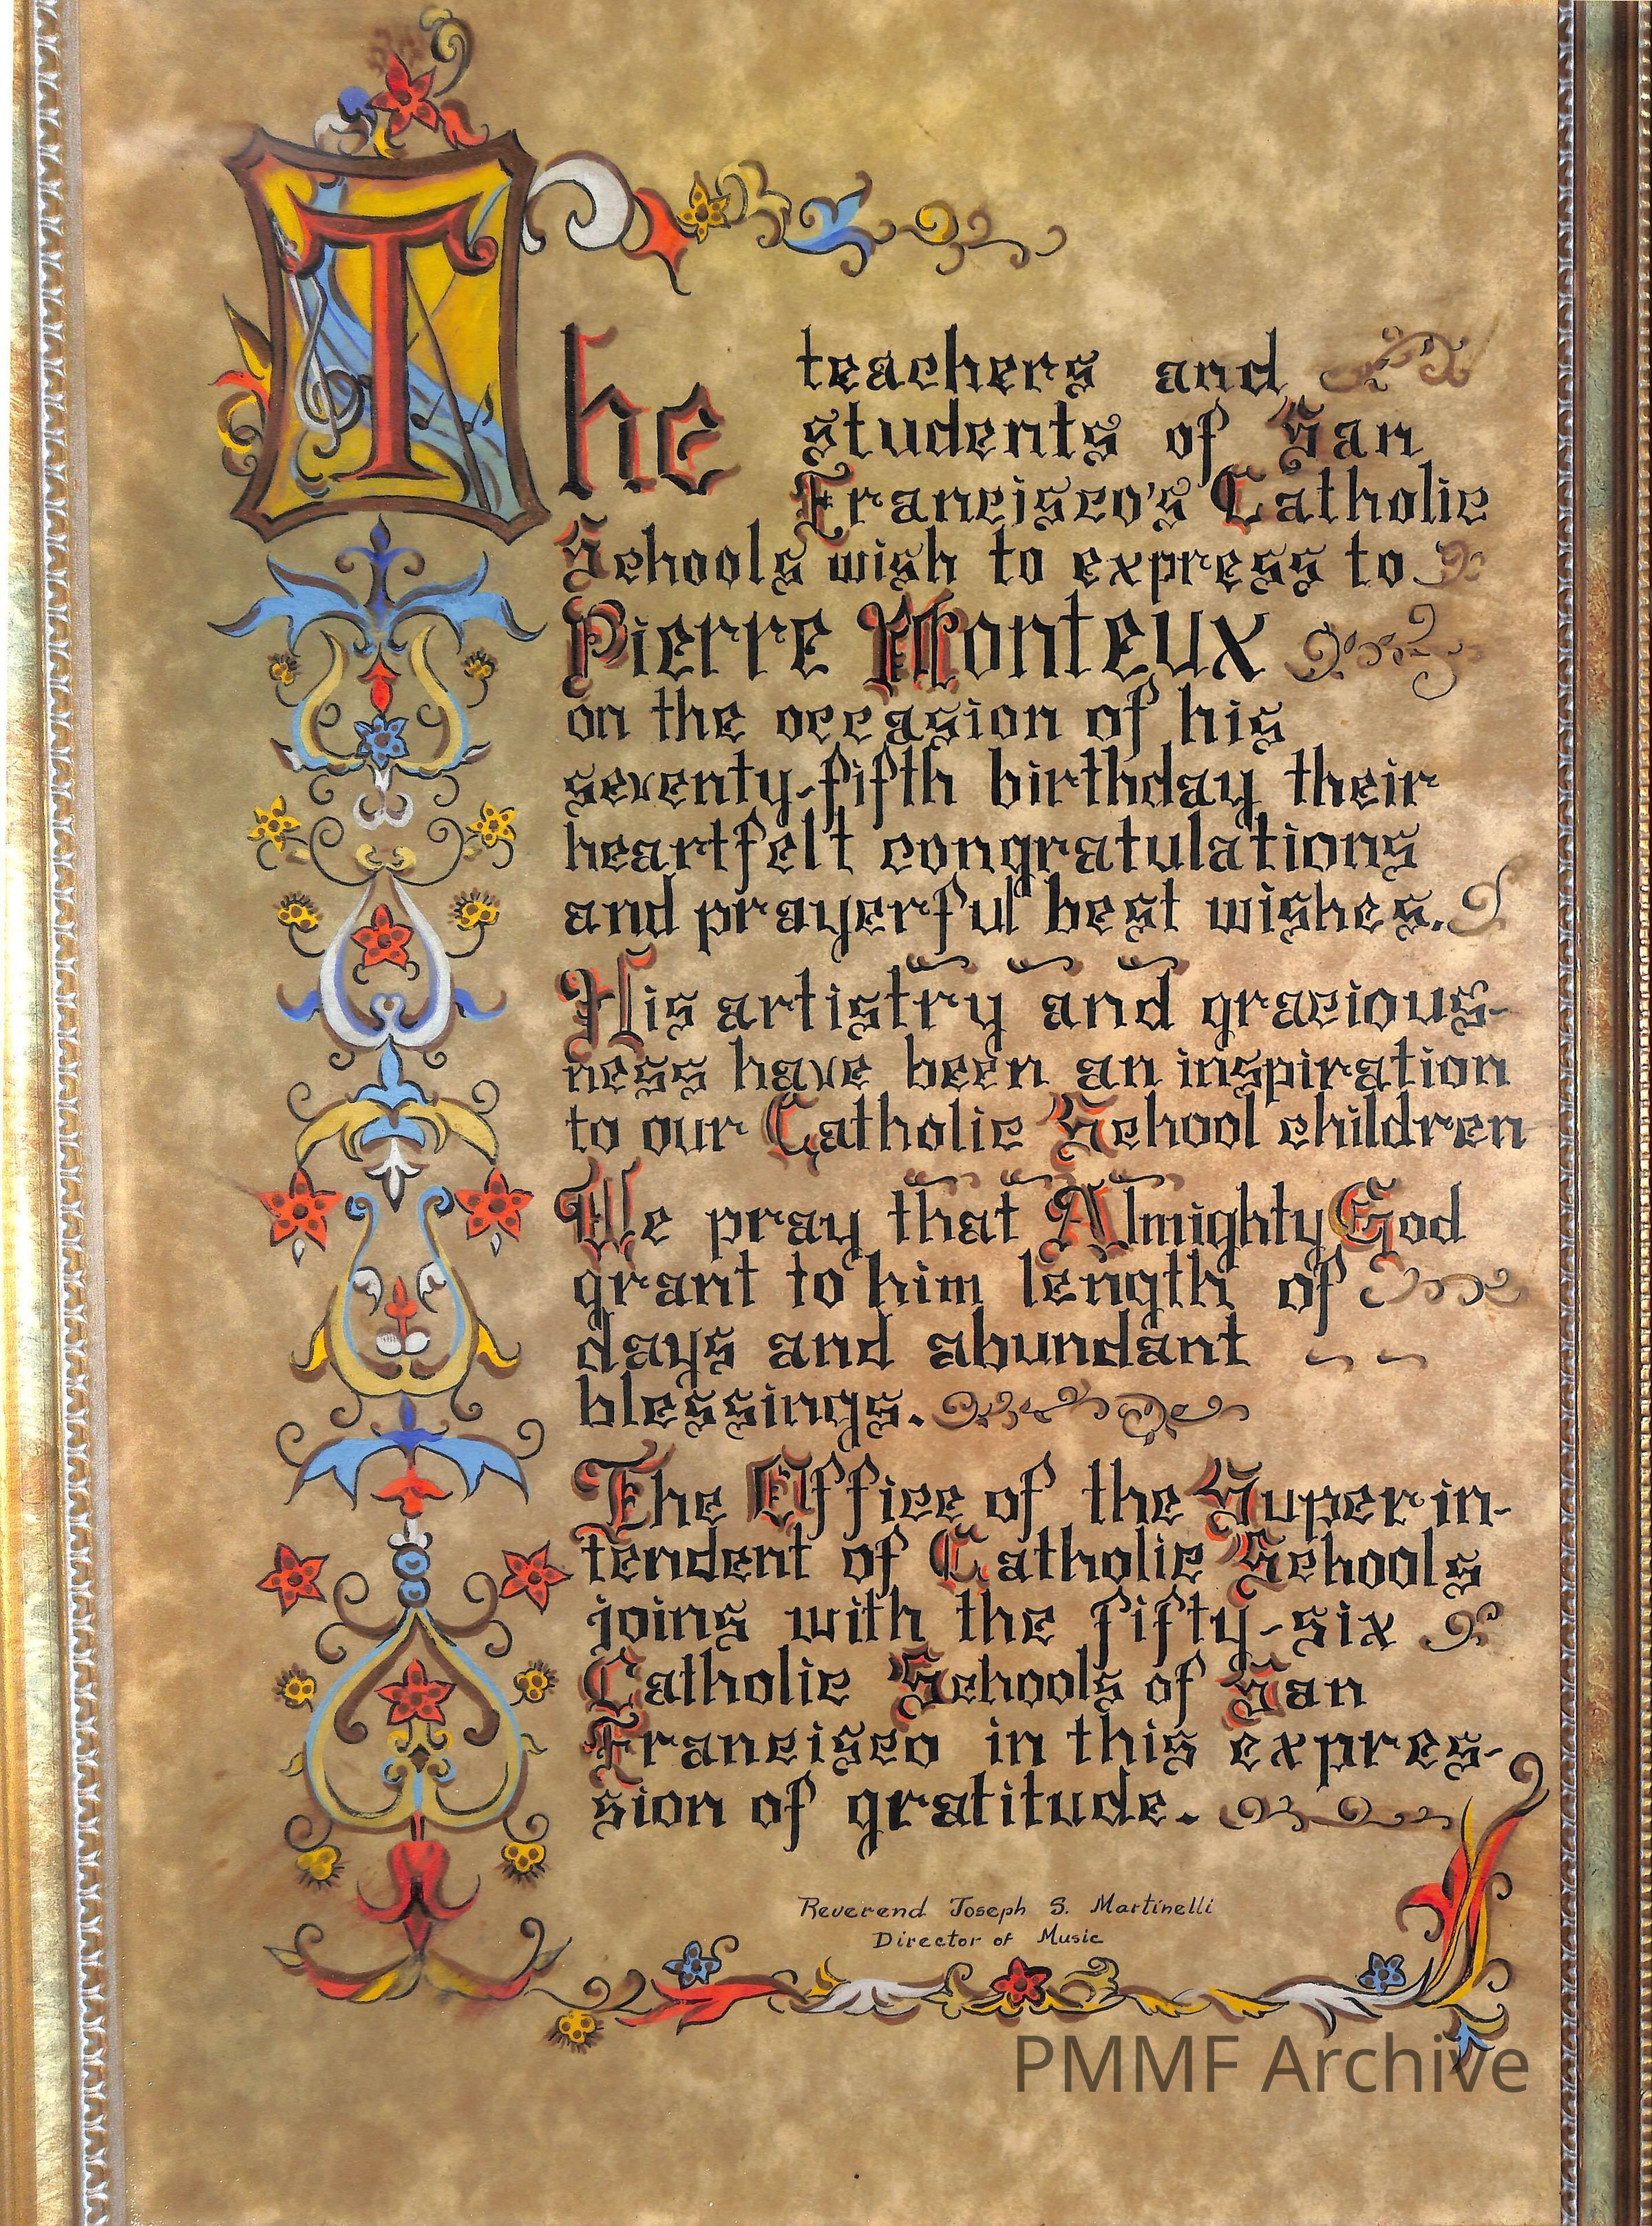 The teachers and
students of San
Francisco's Catholic
Schools wish to express to
Pierre Monteux
on the occasion of his
seventy-fifth birthday their
heartfelt congratulations
and prayerful best wishes.
His artistry and gracious-
ness have been an inspiration
to our Catholic School children
We pray that Almighty God
grant to him length of
days and abundant
blessings.
The Office of the Superin-
tendent of Catholic Schools
joins with the fifty-six
Catholic Schools of San
Francisco in this expres-
sion of gratitude.
Reverend Joseph S. Martinelli
Director of Music
PMMF Archive